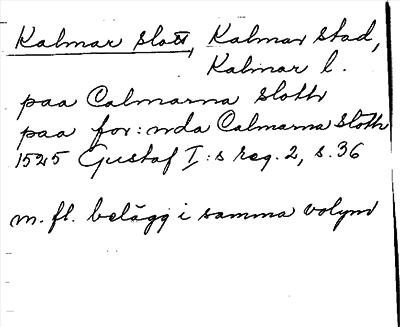 Kalmar slott, Kalmar stad,
Kalmar l.
paa Calmarna slotth
paa for:nda Calmarna slotth
1525 Gustaf I:s reg. 2, s. 36
m. fl. belägg i samma volym